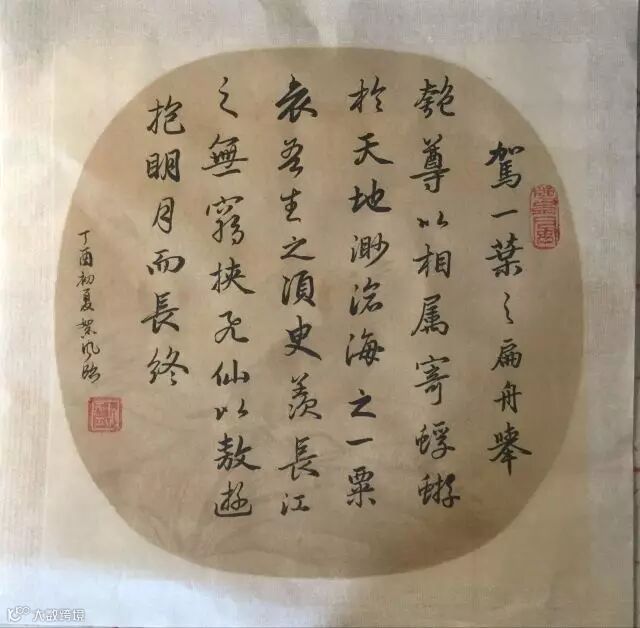 駕一葉之扁舟舉
匏尊以相屬寄蜉蝣
於天地渺滄海之一粟
哀吾生之須臾羨長江
之無窮挾飛仙以敖遊
抱明月而長終
丁酉初夏
大数跨境